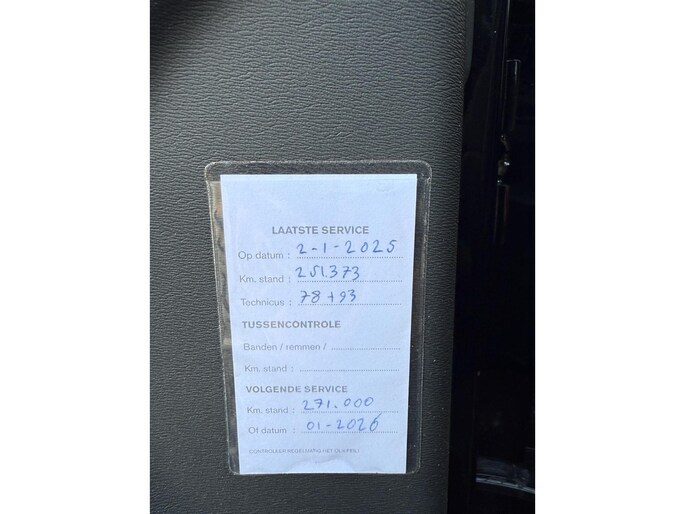 LAATSTE SERVICE
Op datum : 2-1-2025
Km. stand : 251.373
Technicus : 78+93
TUSSENCONTROLE
Banden / remmen /
Km. stand :
VOLGENDE SERVICE
Km. stand : 271.000
Of datum : 01-2026
CONTROLEER REGELMATIG HET OLIEPEIL!